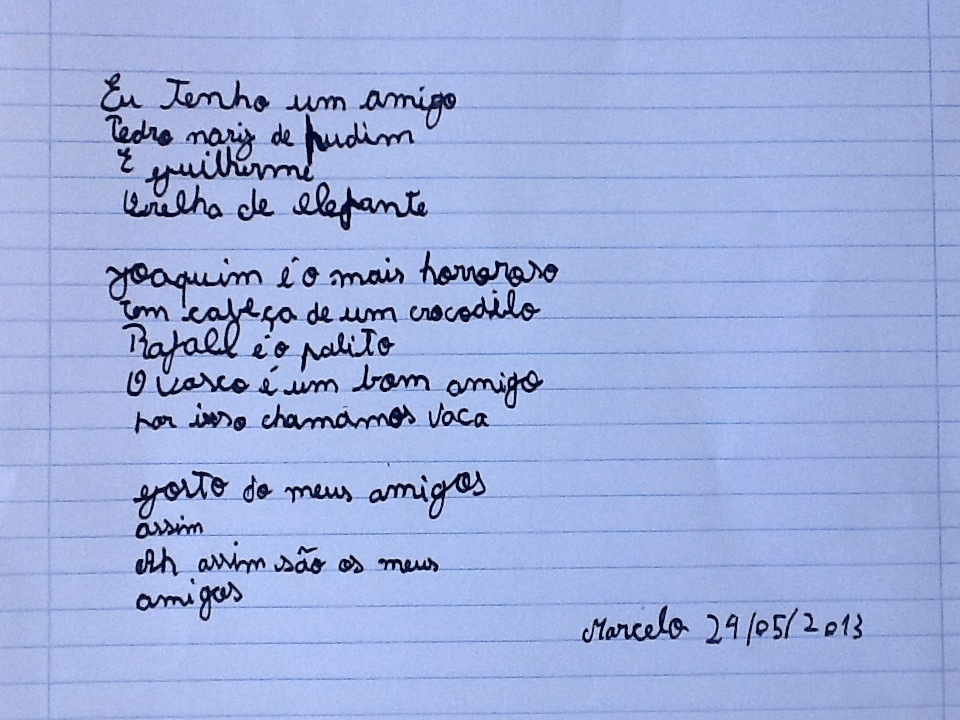 Eu Tenho um amigo
Pedro nariz de pudim
E guilherme
Orelha de elefante
Joaquim é o mais horroroso
tem cabeça de um crocodilo
Rafael é o palito
O vasco é um bom amigo
por isso chamamos vaca
gosto do meus amigos
assim
Ah assim são os meus
amigos
Marcelo 29/05/2013